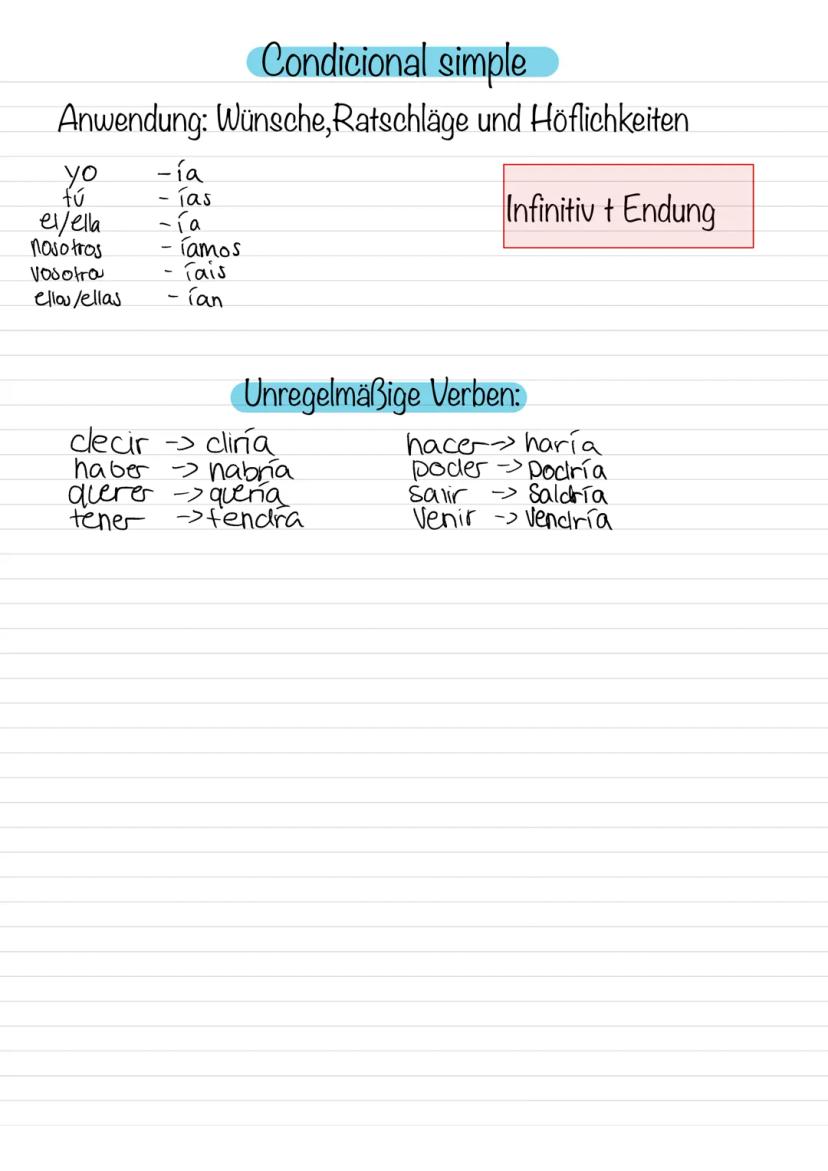 Condicional simple
Anwendung: Wünsche, Ratschläge und Höflichkeiten
yo -ía
tú - ías
el/ella -ía
nosotros - íamos
vosotros - íais
ellos/ellas - ían
Infinitiv + Endung
Unregelmäßige Verben:
decir -> diría
haber -> habría
querer -> quería
tener -> tendrá
hacer -> haría
poder -> Podría
salir -> Saldría
Venir -> Vendría